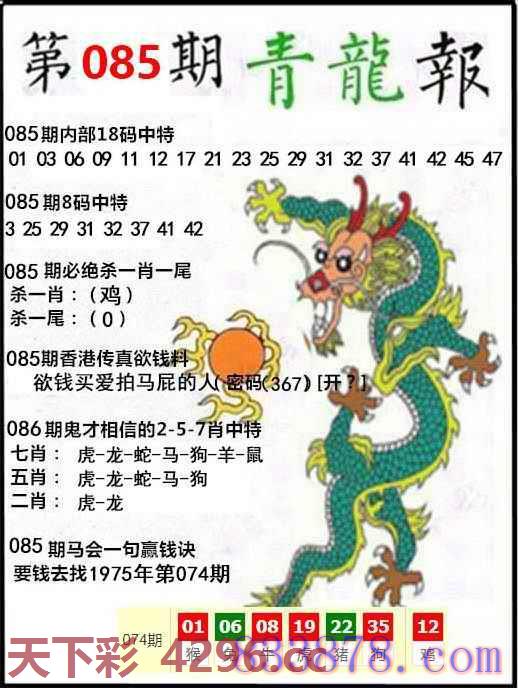 第085期青龍報
085期内部18码中特
01 03 06 09 11 12 17 21 23 25 29 31 32 37 41 42 45 47
085期8码中特
3 25 29 31 32 37 41 42
085期必绝杀一肖一尾
杀一肖：(鸡)
杀一尾：(0)
085期香港传真欲钱料
欲钱买爱拍马屁的人(密码(367)[开?]
086期鬼才相信的2-5-7肖中特
七肖： 虎-龙-蛇-马-狗-羊-鼠
五肖： 虎-龙-蛇-马-狗
二肖： 虎-龙
085期马会一句赢钱诀
要钱去找1975年第074期
074期 01 06 08 19 22 35 12
猴 兔 牛 虎 猪 狗 鸡
天下彩 4296.cc